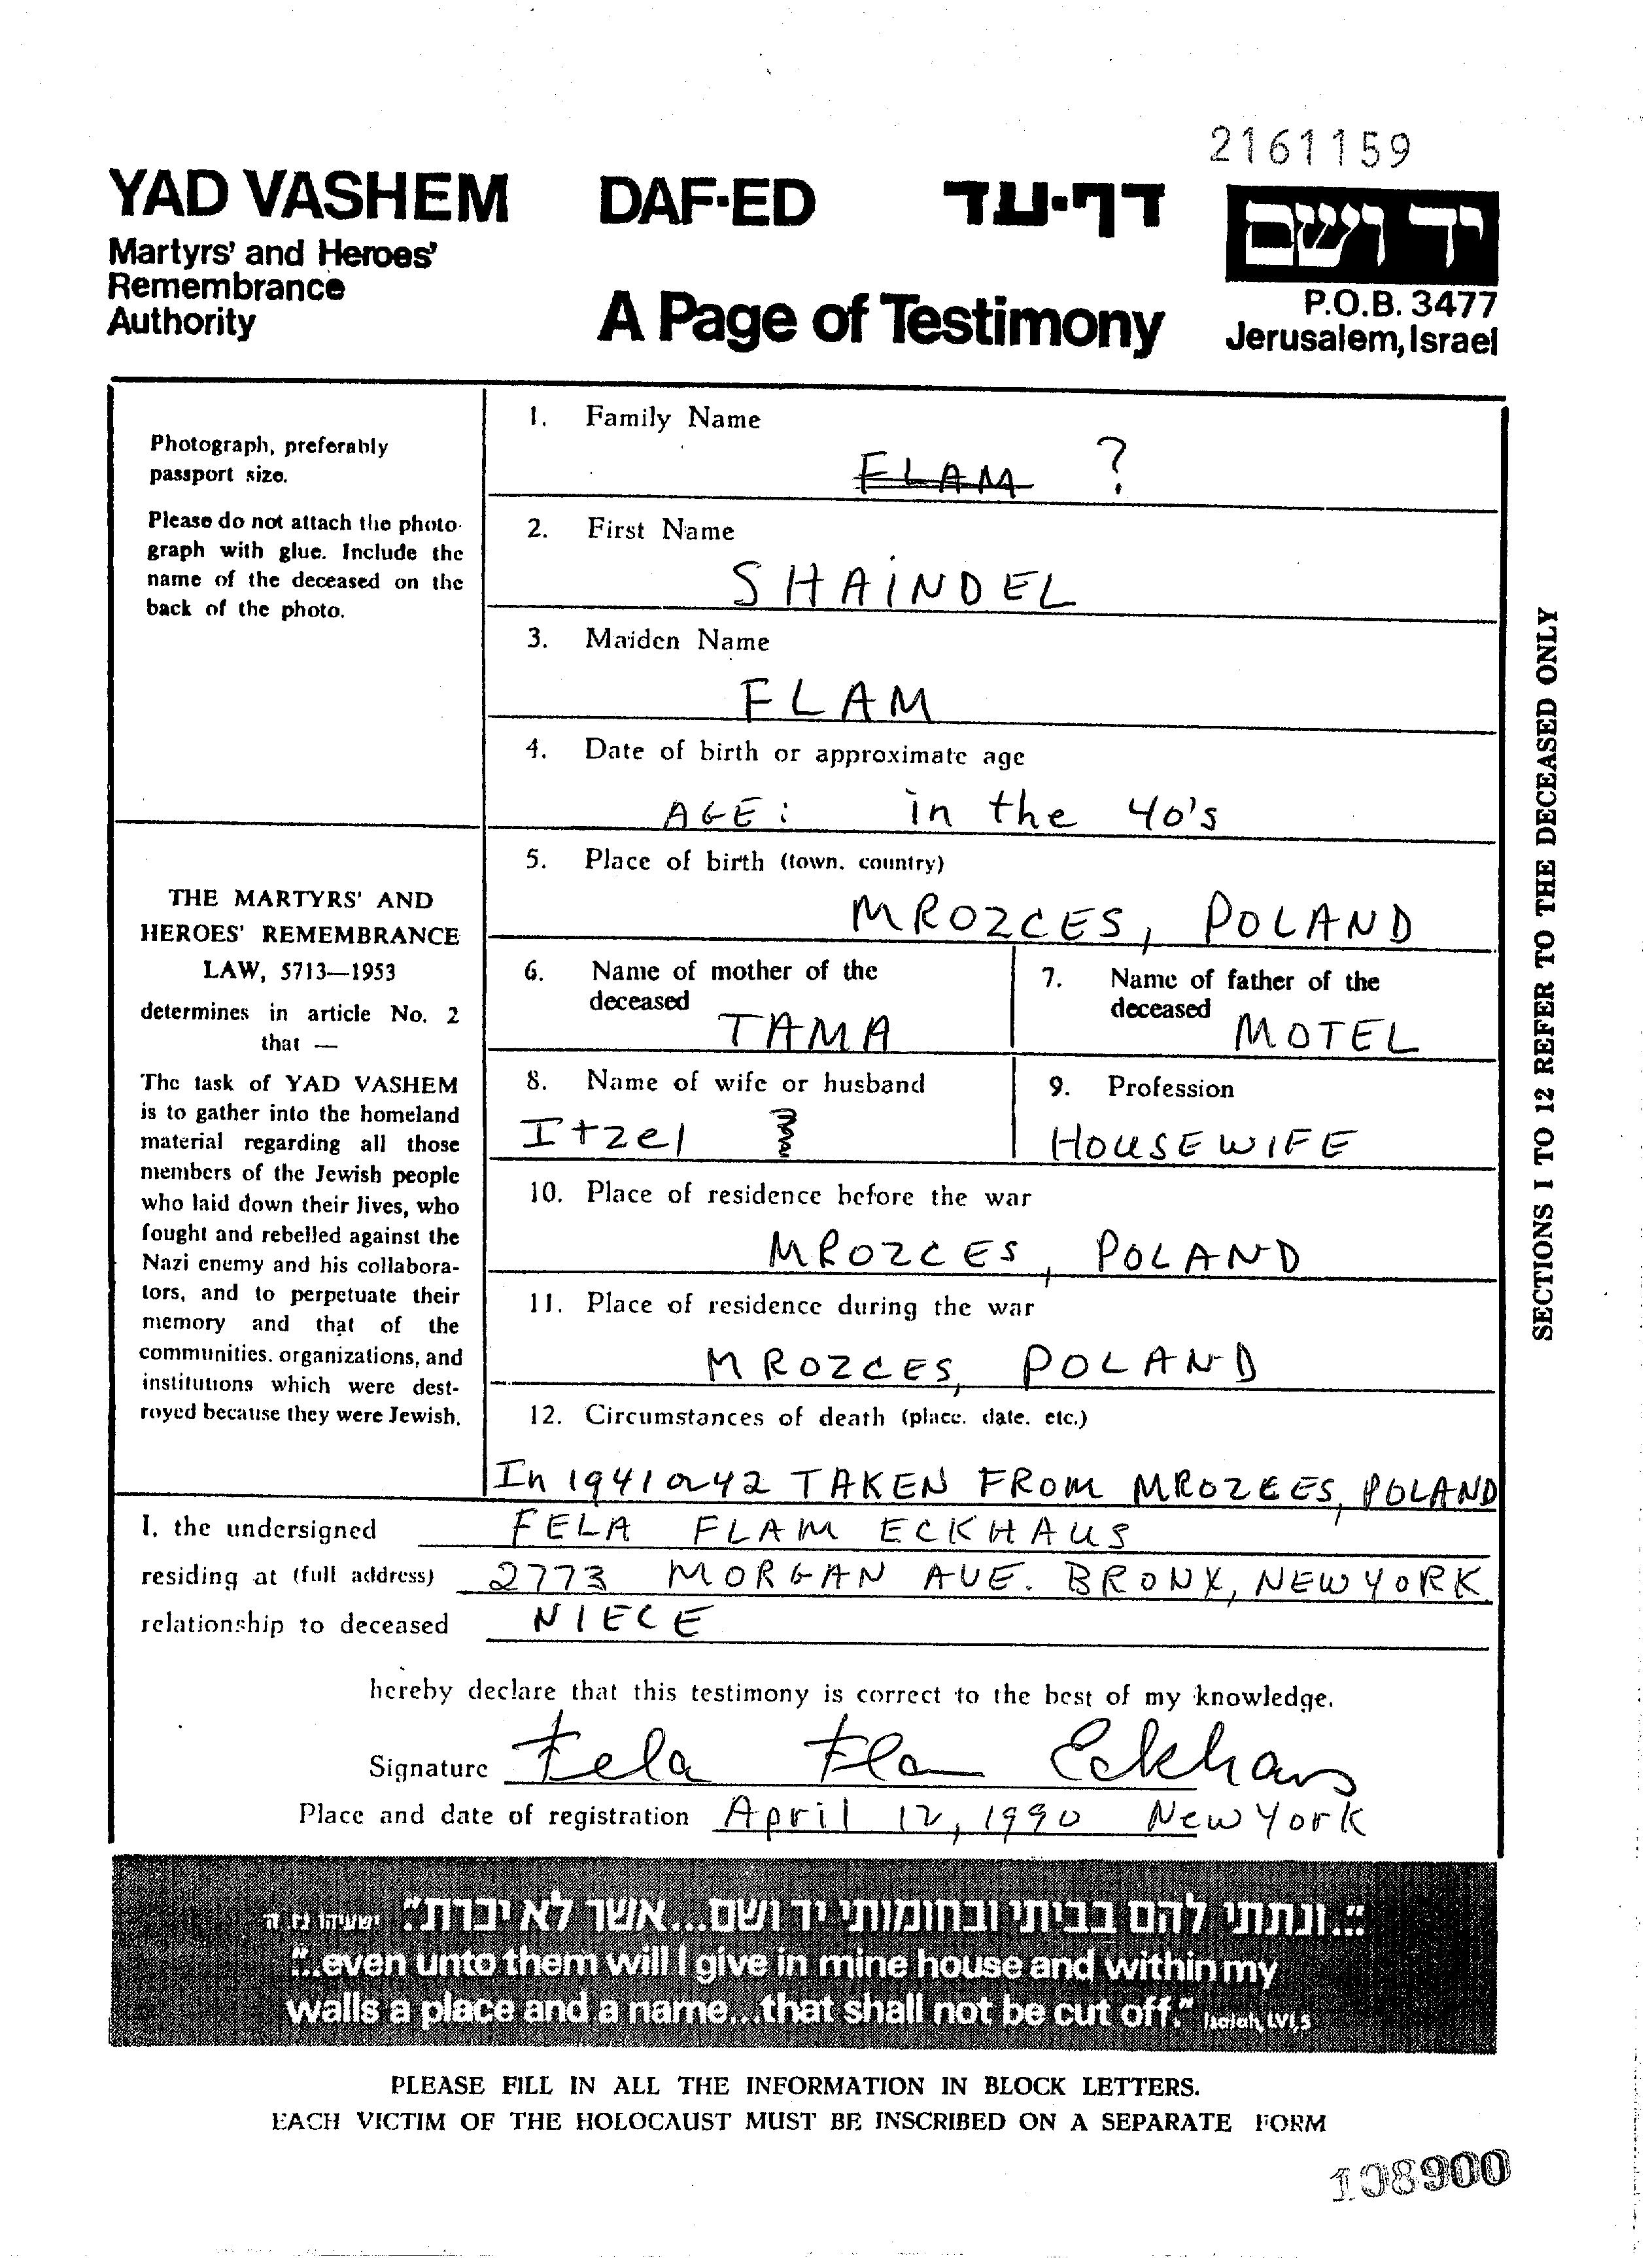 2161159
YAD VASHEM DAF-ED דף-עד
יד ושם
Martyrs' and Heroes'
Remembrance
Authority
A Page of Testimony
P.O.B. 3477
Jerusalem, Israel
Photograph, preferably
passport size.
Please do not attach the photo-
graph with glue. Include the
name of the deceased on the
back of the photo.
THE MARTYRS' AND
HEROES' REMEMBRANCE
LAW, 5713—1953
determines in article No. 2
that —
The task of YAD VASHEM
is to gather into the homeland
material regarding all those
members of the Jewish people
who laid down their lives, who
fought and rebelled against the
Nazi enemy and his collabora-
tors, and to perpetuate their
memory and that of the
communities, organizations, and
institutions which were dest-
royed because they were Jewish.
1. Family Name
FLAM ?
2. First Name
SHAINDEL
3. Maiden Name
FLAM
4. Date of birth or approximate age
AGE: in the 40's
5. Place of birth (town, country)
MROZCES, POLAND
6. Name of mother of the
deceased
TAMA
7. Name of father of the
deceased
MOTEL
8. Name of wife or husband
Itzel
9. Profession
HOUSEWIFE
10. Place of residence before the war
MROZCES, POLAND
11. Place of residence during the war
MROZCES, POLAND
12. Circumstances of death (place, date, etc.)
In 1941 or 42 TAKEN FROM MROZCES, POLAND
SECTIONS 1 TO 12 REFER TO THE DECEASED ONLY
I, the undersigned FELA FLAM ECKHAUS
residing at (full address) 2773 MORGAN AVE. BRONX, NEW YORK
relationship to deceased NIECE
hereby declare that this testimony is correct to the best of my knowledge.
Signature Fela Flam Eckhaus
Place and date of registration April 12, 1990 New York
"...ונתתי להם בביתי ובחומותי יד ושם...אשר לא יכרת." ישעיהו נו ה
"...even unto them will I give in mine house and within my
walls a place and a name...that shall not be cut off." Isaiah, LVI,5
PLEASE FILL IN ALL THE INFORMATION IN BLOCK LETTERS.
EACH VICTIM OF THE HOLOCAUST MUST BE INSCRIBED ON A SEPARATE FORM
108900